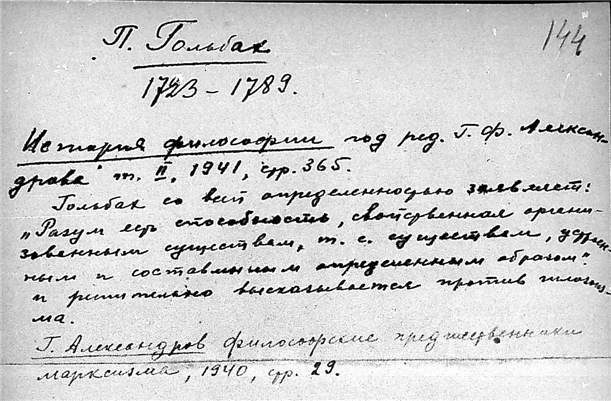 144
П. Гольбах
1723 – 1789.
История философии под ред. Г. Ф. Алексан-
дрова" т. II, 1941, стр. 365.
Гольбах со всей определенностью заявляет:
„Разум есть способность, свойственная органи-
зованным существам, т. е. существам, устроен-
ным и составленным определенным образом"
и решительно высказывается против
ма.
Г. Александров философские предшественники
марксизма, 1940, стр. 29.